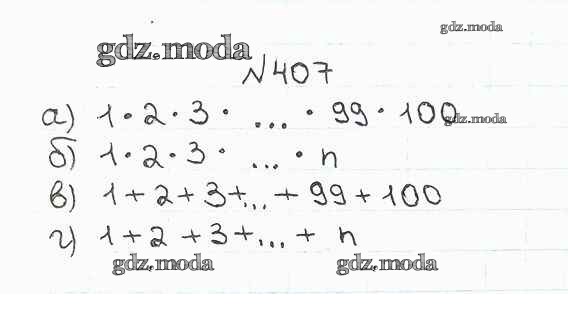 gdz.moda
gdz.moda
№407
а) 1·2·3· ... ·99·100
gdz.moda
б) 1·2·3· ... ·n
в) 1+2+3+...+99+100
г) 1+2+3+...+ n
gdz.moda
gdz.moda